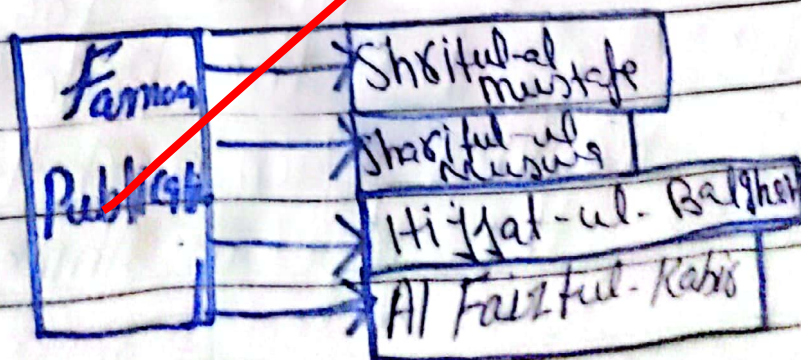 Famous
Publicat
Shritul-al
mustafe
Sharitul-ul
musuna
Hijjat-ul-Balghah
Al Faiztul-Kabir